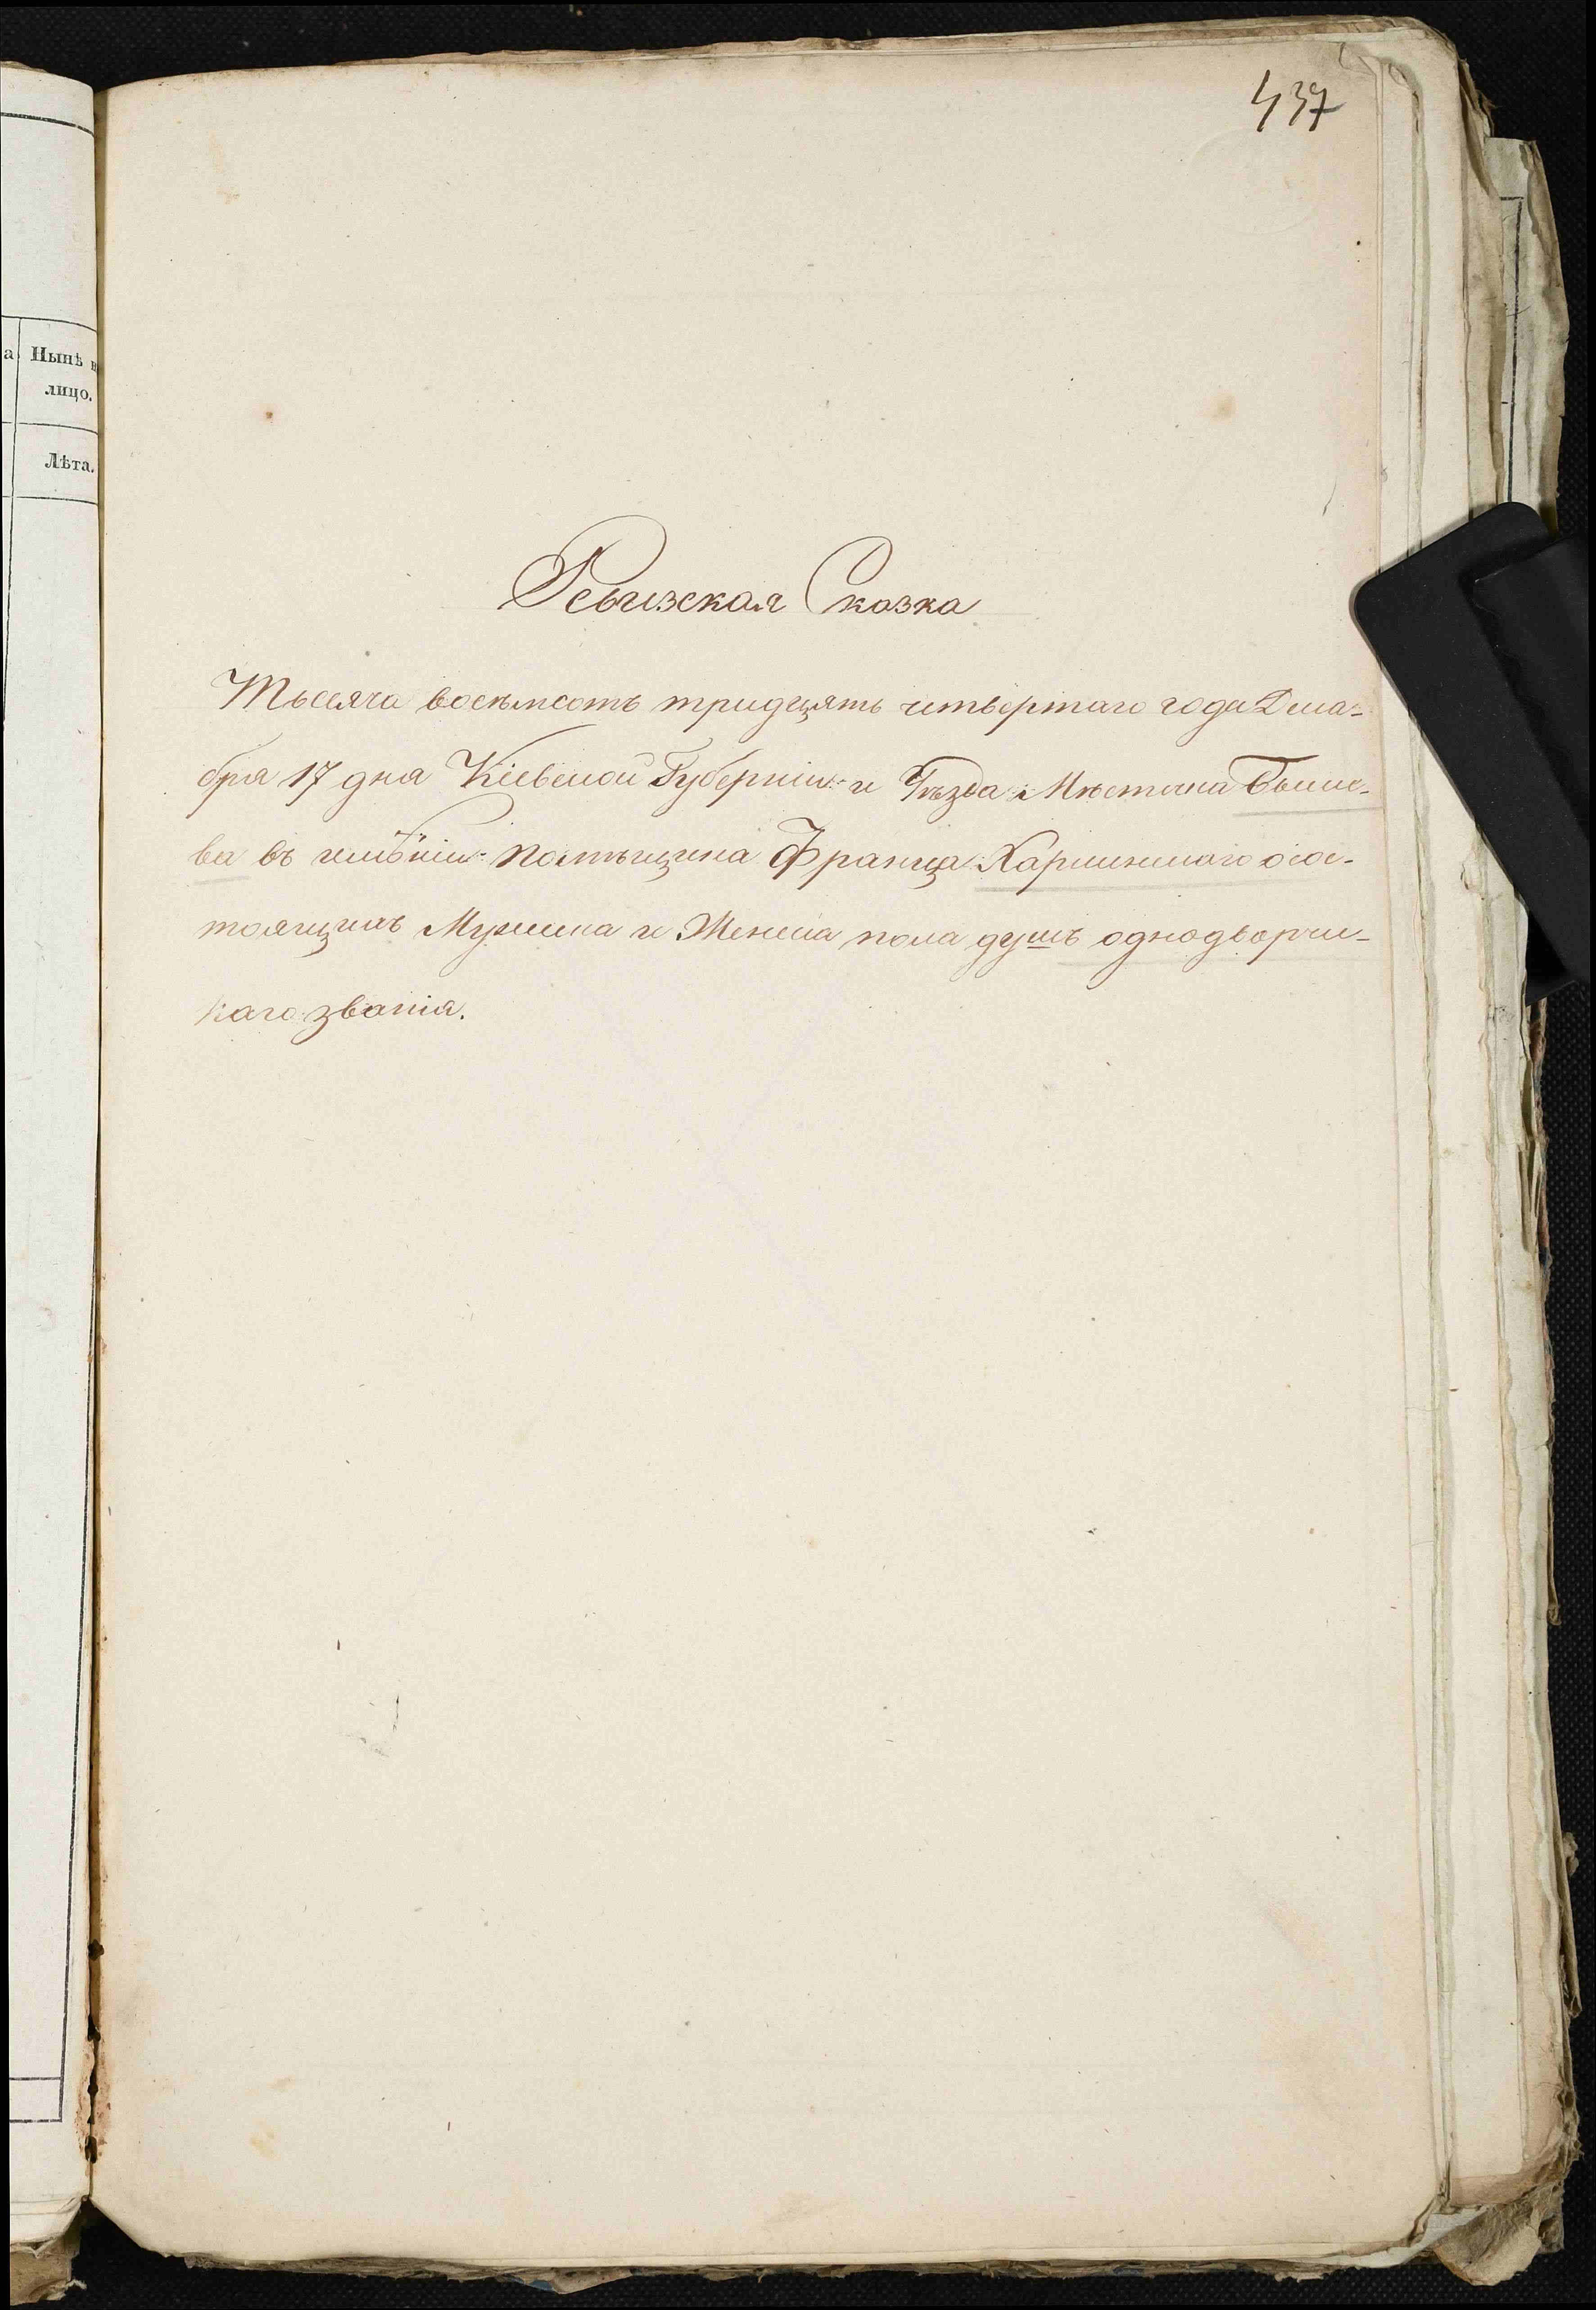 437
а Нынѣ н
лицо.
Лѣта.
Ревизская Сказка
Тысяча восемьсотъ тридцать четвертаго года Дека-
бря 17 дня Кіевской Губерніи и Уѣзда Мѣстечка Быше-
ва въ имѣніи помѣщика Франца Харлинскаго осос-
тоящихъ Мужеска и Женска пола душъ однодворчи-
каго званія.